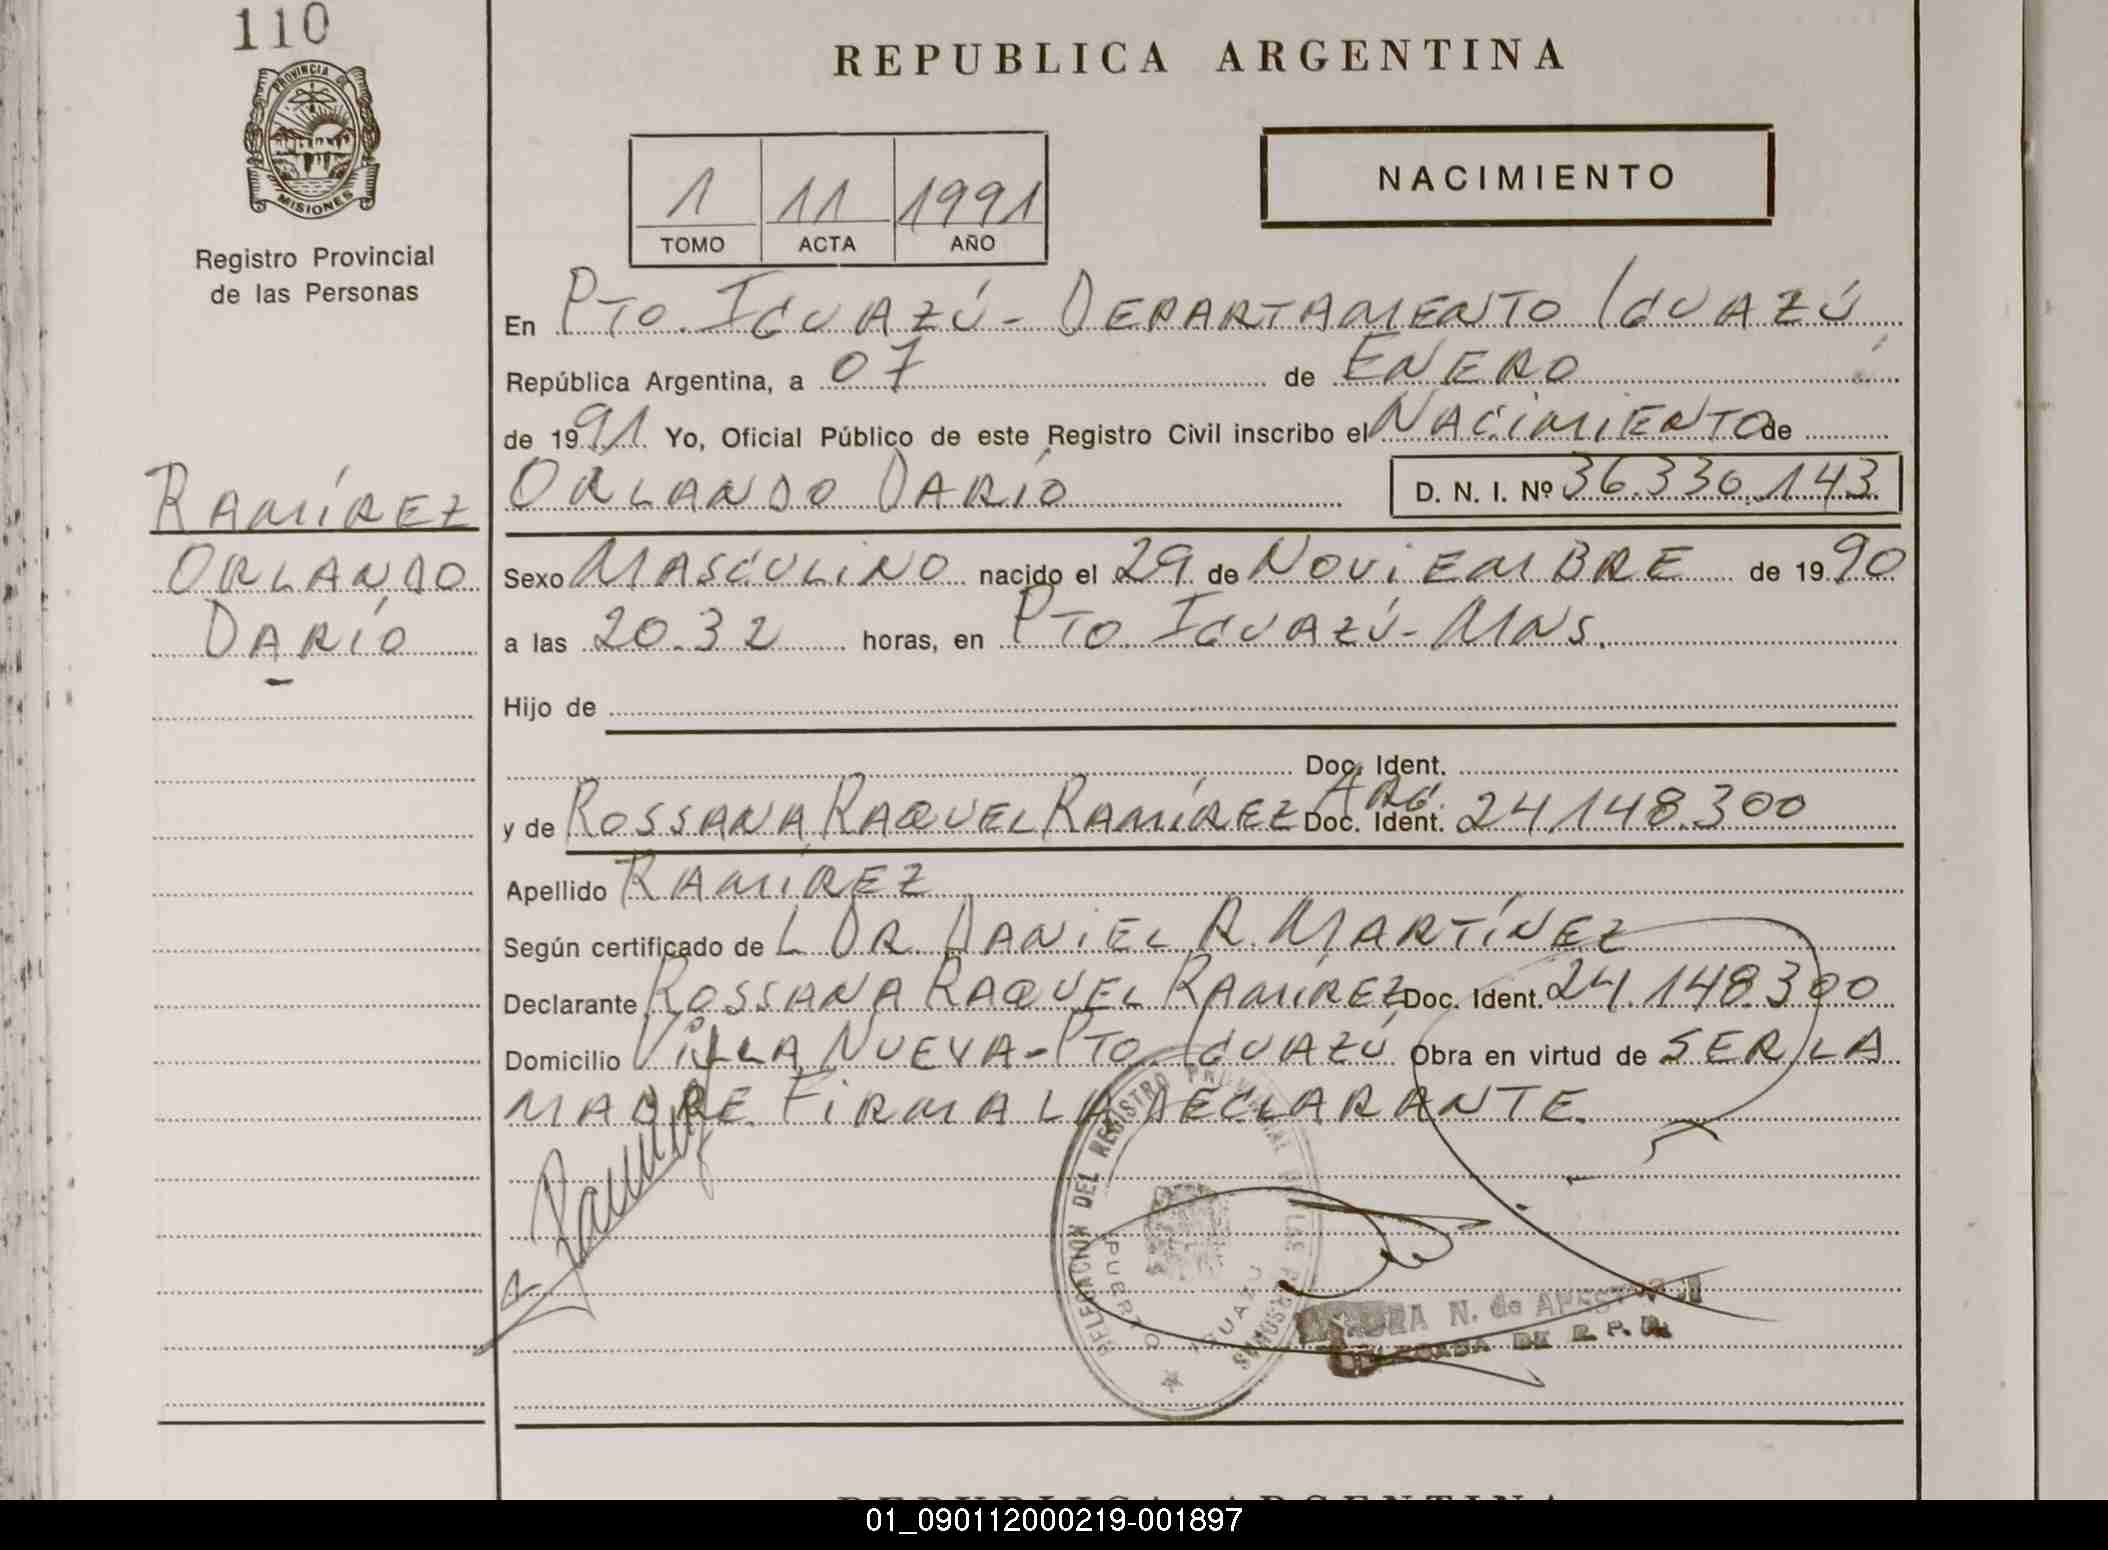 110
PROVINCIA DE
MISIONES
Registro Provincial
de las Personas
RAMÍREZ
ORLANDO
DARÍO
REPUBLICA ARGENTINA
1 11 1991
TOMO ACTA AÑO
NACIMIENTO
En PTO. IGUAZÚ - DEPARTAMENTO IGUAZÚ
República Argentina, a 07 de ENERO
de 1991 Yo, Oficial Público de este Registro Civil inscribo el NACIMIENTO de
ORLANDO DARÍO D. N. I. Nº 36.330.143
Sexo MASCULINO nacido el 29 de NOVIEMBRE de 1990
a las 20.32 horas, en PTO. IGUAZÚ - MNS.
Hijo de
Doc. Ident.
y de ROSSANA RAQUEL RAMÍREZ ARG. Doc. Ident. 24.148.300
Apellido RAMÍREZ
Según certificado de L DR. DANIEL R. MARTÍNEZ
Declarante ROSSANA RAQUEL RAMÍREZ Doc. Ident. 24.148.300
Domicilio VILLA NUEVA - PTO. IGUAZÚ Obra en virtud de SER LA
MADRE. FIRMA LA DECLARANTE.
DELEGACION DEL REGISTRO PROVINCIAL DE LAS PERSONAS
PUERTO IGUAZU
N. de
DE R. P. P.
REPUBLICA ARGENTINA
01_090112000219-001897